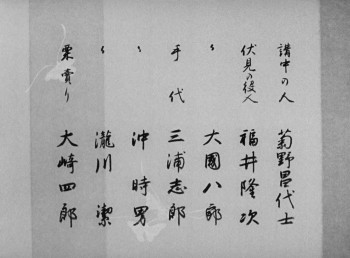 講中の人 菊野昌代士
伏見の役人 福井隆次
〃 大國八郎
手代 三浦志郎
〃 沖時男
〃 瀧川潔
栗賣り 大崎四郎